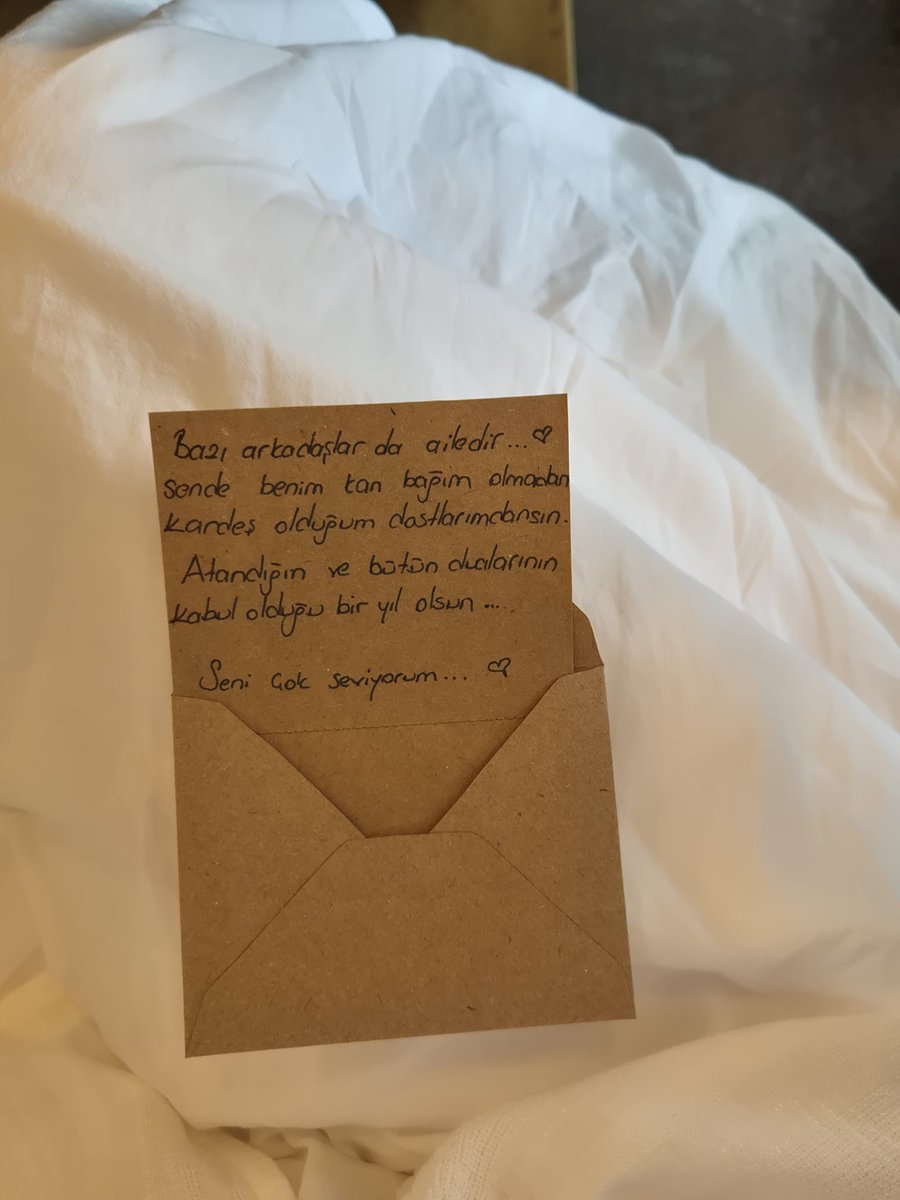 Bazı arkadaşlar da ailedir... ♡
sende benim kan bağım olmadan
kardeş olduğum dostlarımdansın.
Atandığın ve bütün dualarının
kabul olduğu bir yıl olsun ...
Seni çok seviyorum... ♡